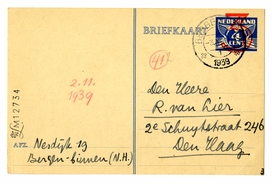 BRIEFKAART
NEDERLAND
CENT
1939
(41)
2.11.
1939
Den Heere
R. van Lier
2e Schuytstraat 246
Den Haag
M12734
AFZ. Nesdijk 19
Bergen-Binnen (N.H.)